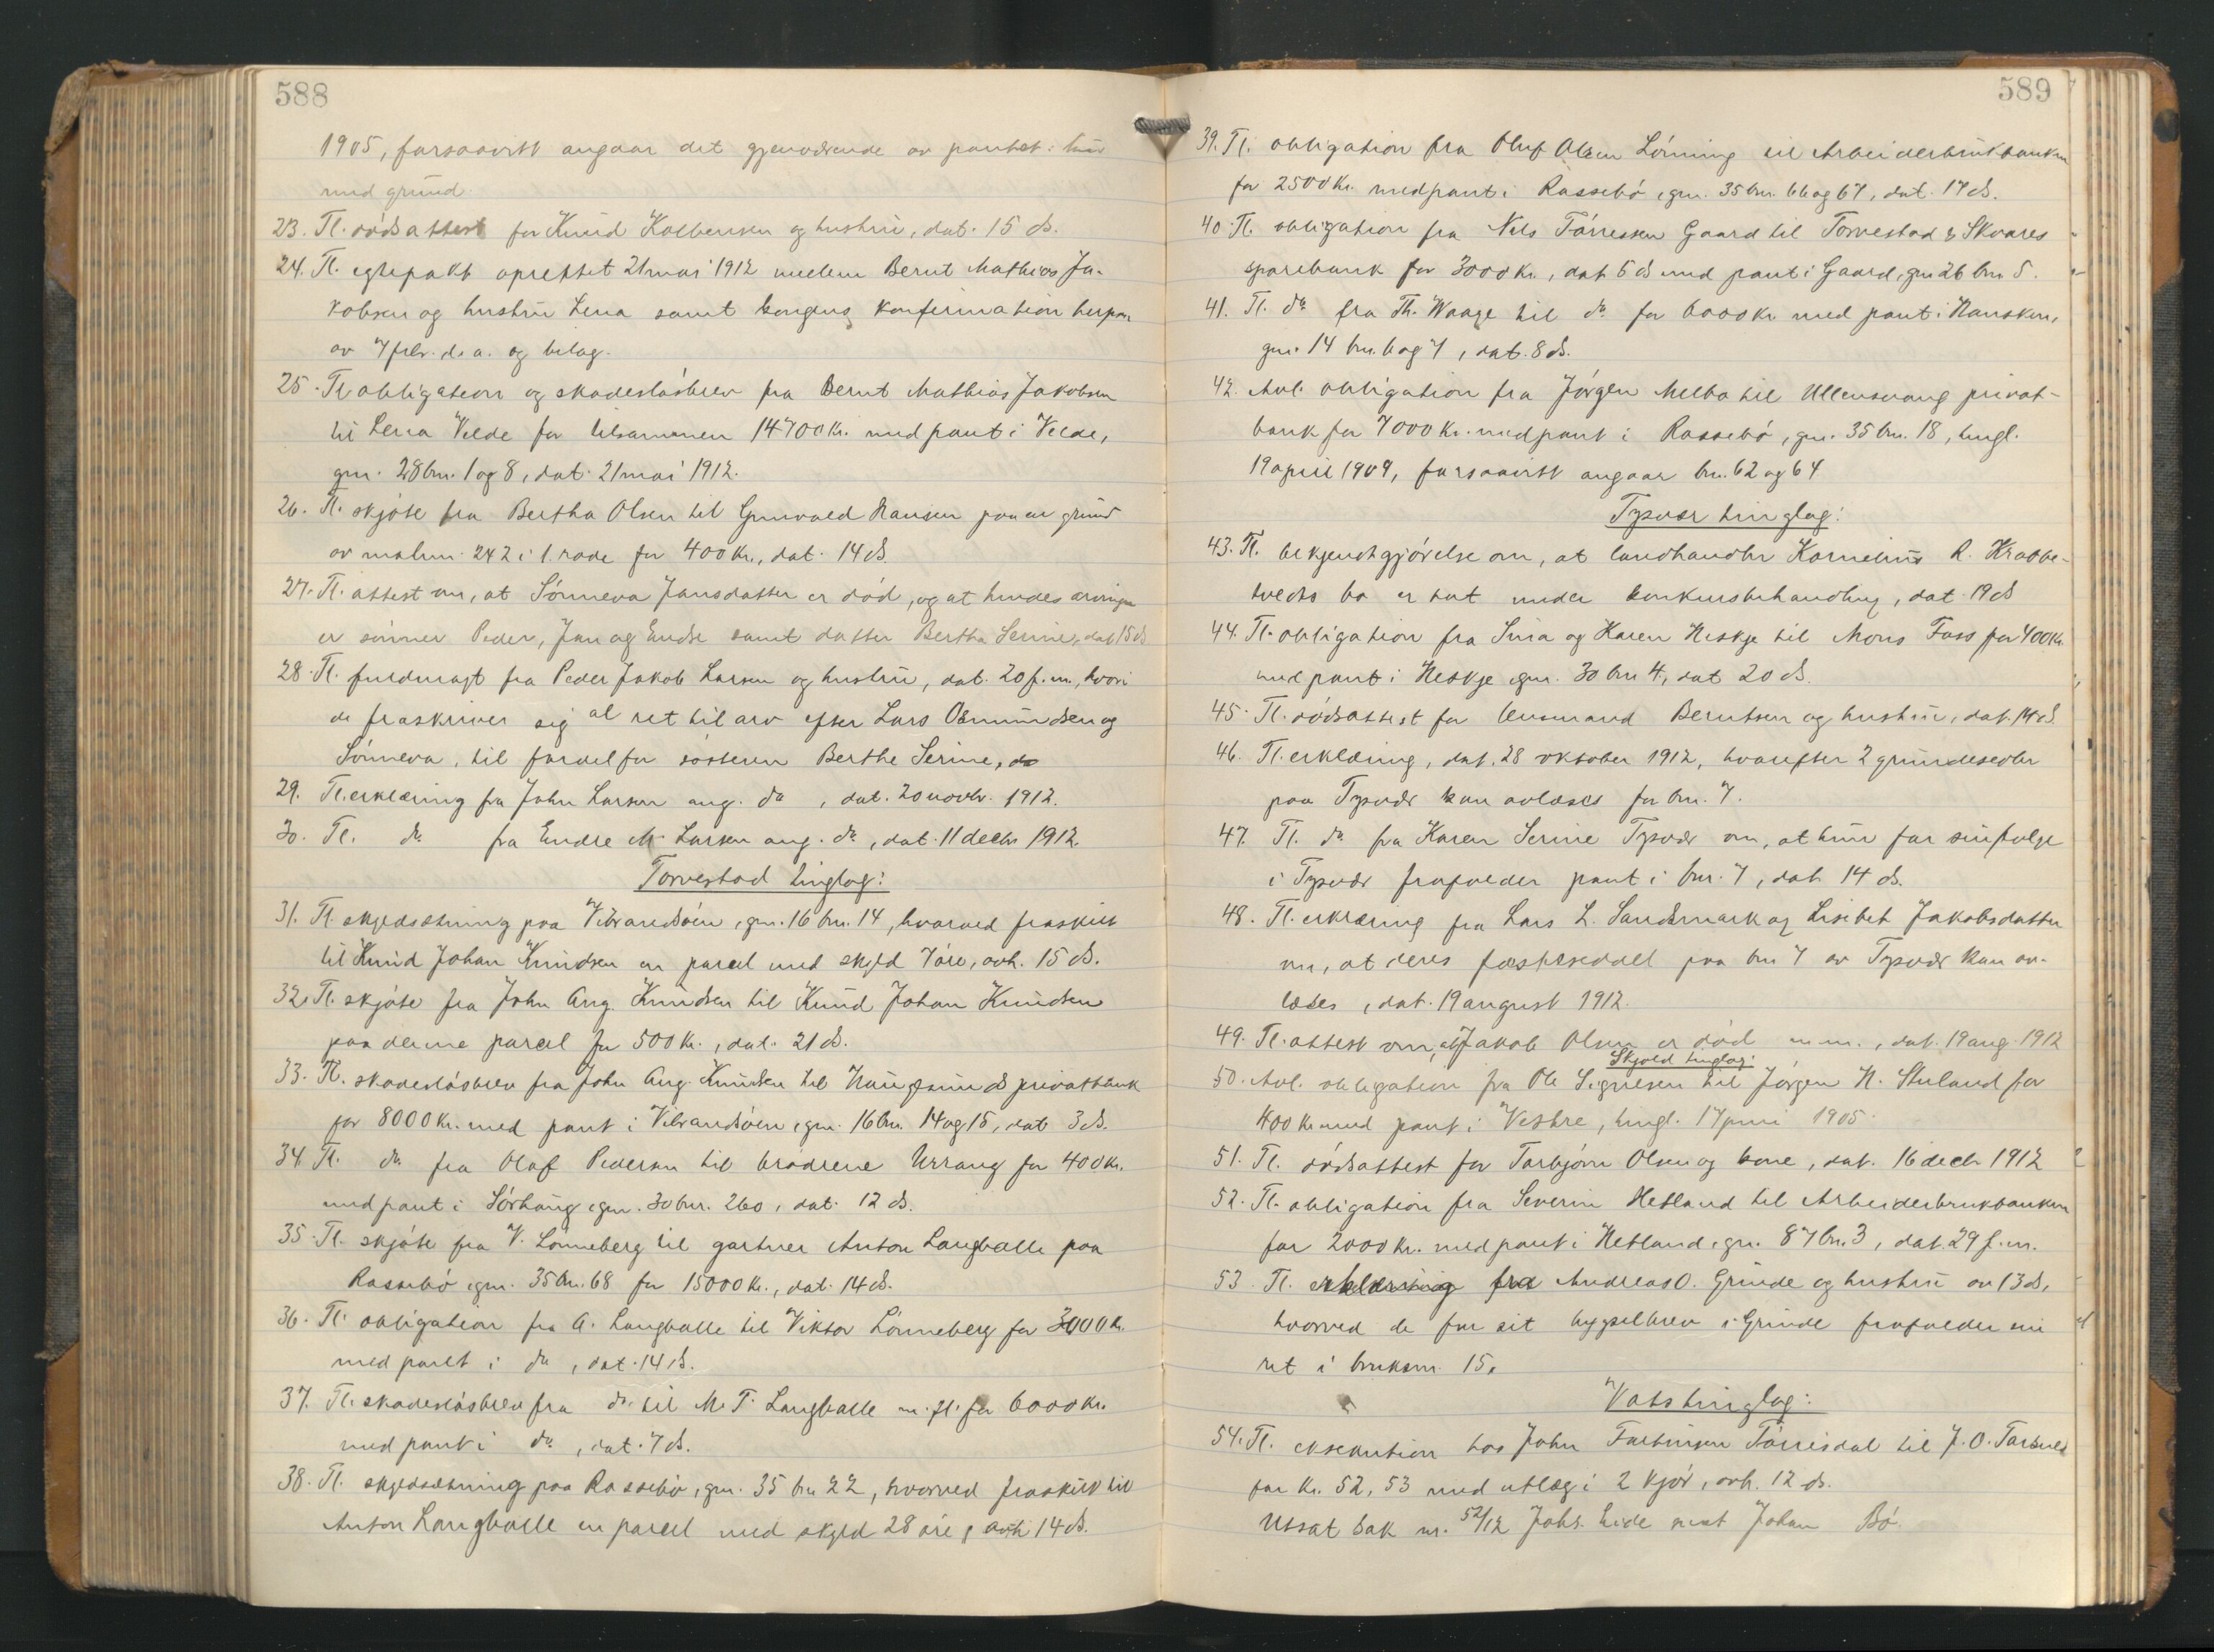 588
1905, forsaavitt angaar det gjenværende av pantet: hus
med grund.
23. Tl. dødsattest for Knud Kolbensen og hustru, dat. 15 ds.
24. Tl. egtepakt oprettet 21 mai 1912 mellem Bernt Mathias Ja-
kobsen og hustru Lena samt kongens konfirmation herpaa
av 7 febr. d. a. og bilag.
25. Tl. obligation og skadesløsbrev fra Bernt Mathias Jakobsen
til Lena Velde for tilsammen 14700 kr. med pant i Velde,
gnr. 28 bnr. 1 og 8, dat. 21 mai 1912.
26. Tl. skjøte fra Bertha Olsen til Grunvald Hansen paa en grund
av matrnr. 242 i 1. rode for 400 kr., dat. 14 ds.
27. Tl. attest om, at Sønneva Jansdatter er død, og at hendes arvinger
er sønner Peder, Jan og Endre samt datter Bertha Serine, dat 15 ds
28. Tl. fuldmagt fra Peder Jakob Larsen og hustru, dat. 20 f. m., hvori
de fraskriver sig al ret til arv efter Lars Osmundsen og
Sønneva, til fordel for søsteren Berthe Serine,
29. Tl. erklæring fra John Larsen ang. do , dat. 20 novbr. 1912.
30. Tl. do fra Endre M. Larsen ang. do, dat. 11 decbr 1912.
Torvestad tinglag:
31. Tl. skyldsætning paa Vibrandsøen, gnr. 16 bnr. 14, hvorved fraskilt
til Knud Johan Knudsen en parcel med skyld 7 øre, avh. 15 ds.
32. Tl. skjøte fra John Aug. Knudsen til Knud Johan Knudsen
paa denne parcel for 500 kr., dat. 21 ds.
33. Tl. skadesløsbrev fra John Aug. Knudsen til Haugesunds privatbank
for 8000 kr. med pant i Vibrandsøen, gnr. 16 bnr. 14 og 15, dat 3 ds.
34. Tl. do fra Olaf Pedersen til brødrene Urrang for 400 kr.
med pant i Sørhaug, gnr. 30 bnr. 260, dat. 12 ds.
35. Tl. skjøte fra V. Lønneberg til gartner Anton Langballe paa
Rossebø, gnr. 35 bnr. 68 for 15000 kr., dat. 14 ds.
36. Tl. obligation fra A. Langballe til Viktor Lønneberg for 3000 kr.
med pant i do , dat. 14 ds.
37. Tl. skadesløsbrev fra do til M. T. Langballe m. fl. for 6000 kr.
med pant i do , dat. 7 ds.
38. Tl. skyldsætning paa Rossebø, gnr. 35 bnr 22, hvorved fraskilt til
Anton Langballe en parcel med skyld 28 øre, avh 14 ds.
589
39. Tl. obligation fra Oluf Olsen Lønning til Arbeiderbrukbanken
for 2500 kr. med pant i Rossebø, gnr. 35 bnr. 66 og 67, dat. 17 ds.
40. Tl. obligation fra Nils Tørressen Gaard til Torvestad & Skaares
sparebank for 3000 kr., dat 5 ds med pant i Gaard, gnr 26 bnr 5.
41. Tl. do fra Th. Waage til do for 6000 kr med pant i Hansken,
gnr. 14 bnr. 6 og 7, dat. 8 ds.
42. Avl. obligation fra Jørgen Melbo til Ullensvang privat-
bank for 7000 kr. med pant i Rossebø, gnr. 35 bnr. 18, tingl.
19 april 1909, forsaavitt angaar bnr. 62 og 64
Tysvær tinglag:
43. Tl. bekjendtgjørelse om, at landhandler Kornelius R. Krabbe-
tveits bo er tat under konkursbehandling, dat. 19 ds
44. Tl. obligation fra Sina og Karen Heskje til Mons Foss for 400 kr.
med pant i Heskje gnr. 30 bnr 4, dat 20 ds.
45. Tl. dødsattest for lensmand Berntsen og hustru, dat. 14 ds.
46. Tl. erklæring, dat. 28 oktober 1912, hvorefter 2 grundesedler
paa Tysvær kan avlæses for bnr. 7.
47. Tl. do fra Karen Serine Tysvær om, at hun for sin følge
i Tysvær frafalder pant i bnr. 7, dat. 14 ds.
48. Tl. erklæring fra Lars L. Sandsmark og Lisebet Jakobsdatter
om, at deres fæsteseddel paa bnr 7 av Tysvær kan av-
læses, dat. 19 august 1912.
49. Tl. attest om, at Jakob Olsen er død m. m., dat. 19 aug. 1912
Skjold tinglag:
50. Avl. obligation fra Ole Sigvesen til Jørgen N. Stuland for
400 kr med pant i Vestre, tingl. 17 juni 1905.
51. Tl. dødsattest for Torbjørn Olsen og kone, dat. 16 decbr 1912
52. Tl. obligation fra Severin Hetland til Arbeiderbrukbanken
for 2000 kr. med pant i Hetland, gnr. 87 bnr. 3, dat. 29 f. m.
53. Tl. erklæring fra Andreas O. Grinde og hustru av 13 ds,
hvorved de for sit bygselbrev i Grinde frafalder sin
ret i bruksnr. 15.
Vats tinglag:
54. Tl. exekution hos John Torrisdal til J. O.
for kr. 52,53 med utlæg i 2 kjør, avh. 12 ds.
Utsat sak nr. 52/12 Johs. Eide mot Johan Bø.